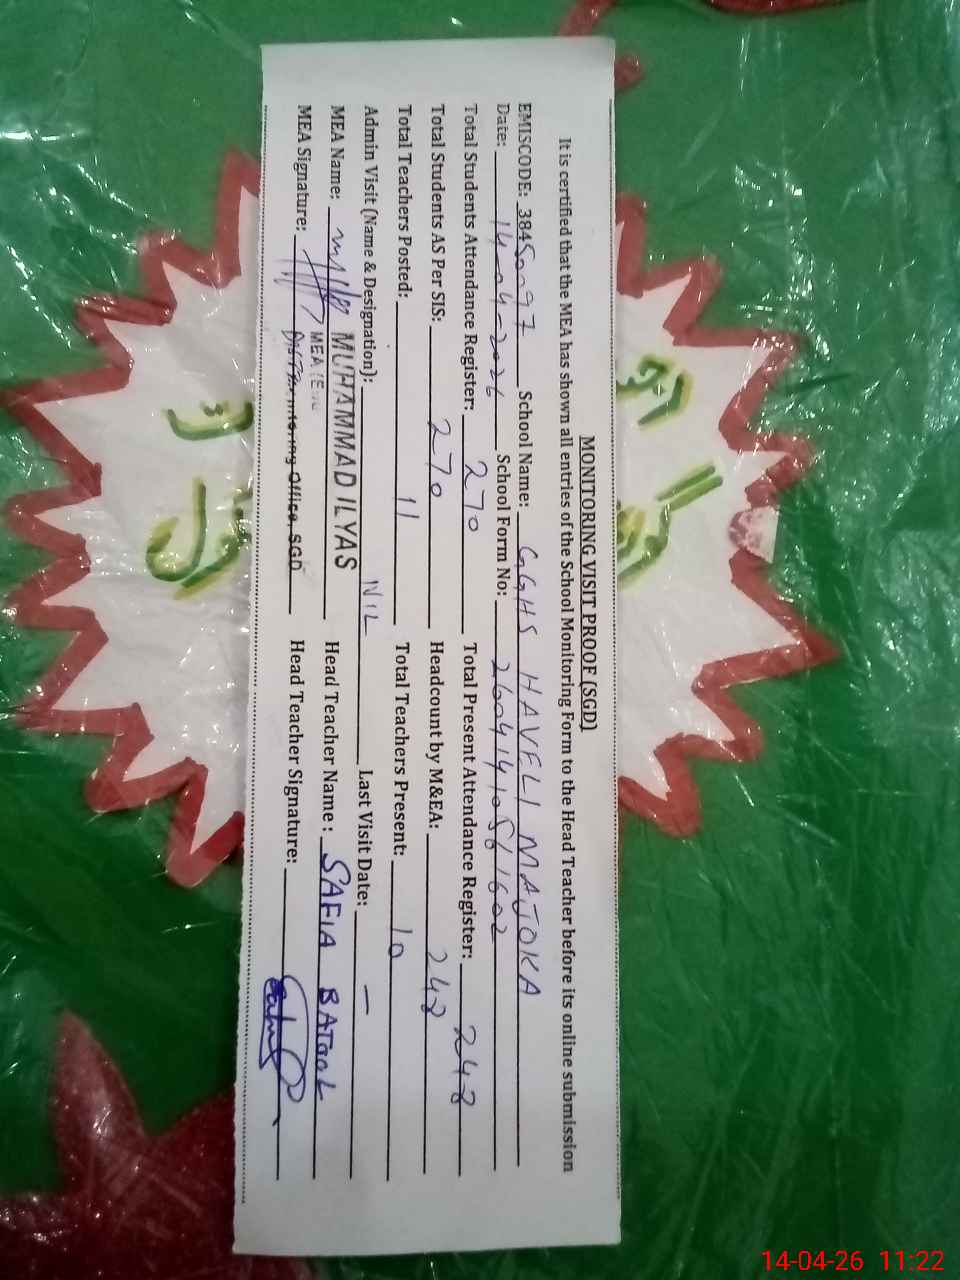 MONITORING VISIT PROOF (SGD)
It is certified that the MEA has shown all entries of the School Monitoring Form to the Head Teacher before its online submission
EMISCODE: 38450097 School Name: GGHS HAVELI MAJOKA
Date: 14-04-2026 School Form No: 
Total Students Attendance Register: 270 Total Present Attendance Register: 248
Total Students AS Per SIS: 270 Headcount by M&EA: 248
Total Teachers Posted: 11 Total Teachers Present: 10
Admin Visit (Name & Designation): NIL Last Visit Date: —
MEA Name: MUHAMMAD ILYAS Head Teacher Name: SAFIA BATOOL
MEA
MEA Signature: Office SGD Head Teacher Signature:
14-04-26 11:22